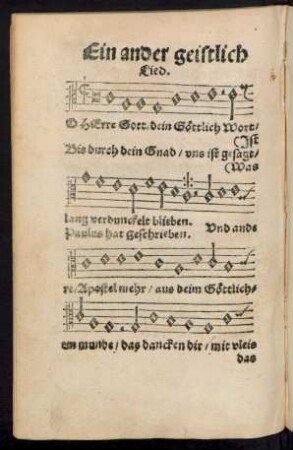 Ein ander geistlich
Lied.
O HErre Gott / dein Göttlich Wort /
(Ist
Bis durch dein Gnad / vns ist gesagt /
(Was
lang verdunckelt blieben.
Paulus hat geschrieben. Vnd ande
re / Apostel mehr / aus deim Göttlich-
em munde / das dancken dir / mit vleis
das